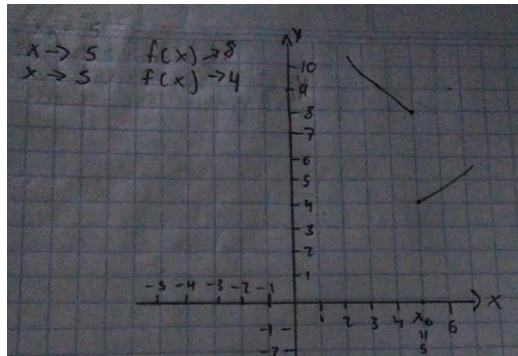 x → 5 f(x) → 8
x → 5 f(x) → 4
y
10
9
8
7
6
5
4
3
2
1
-5 -4 -3 -2 -1
x
1 2 3 4 x₀ 6
-1
=
5
-2